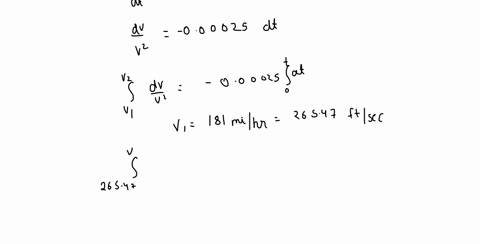 dt
dv/v² = -0.00025 dt
∫_{V1}^{V2} dv/v² = - 0.00025 ∫_0^t dt
V1 = 181 mi/hr = 265.47 ft/sec
∫_{265.47}^{V}